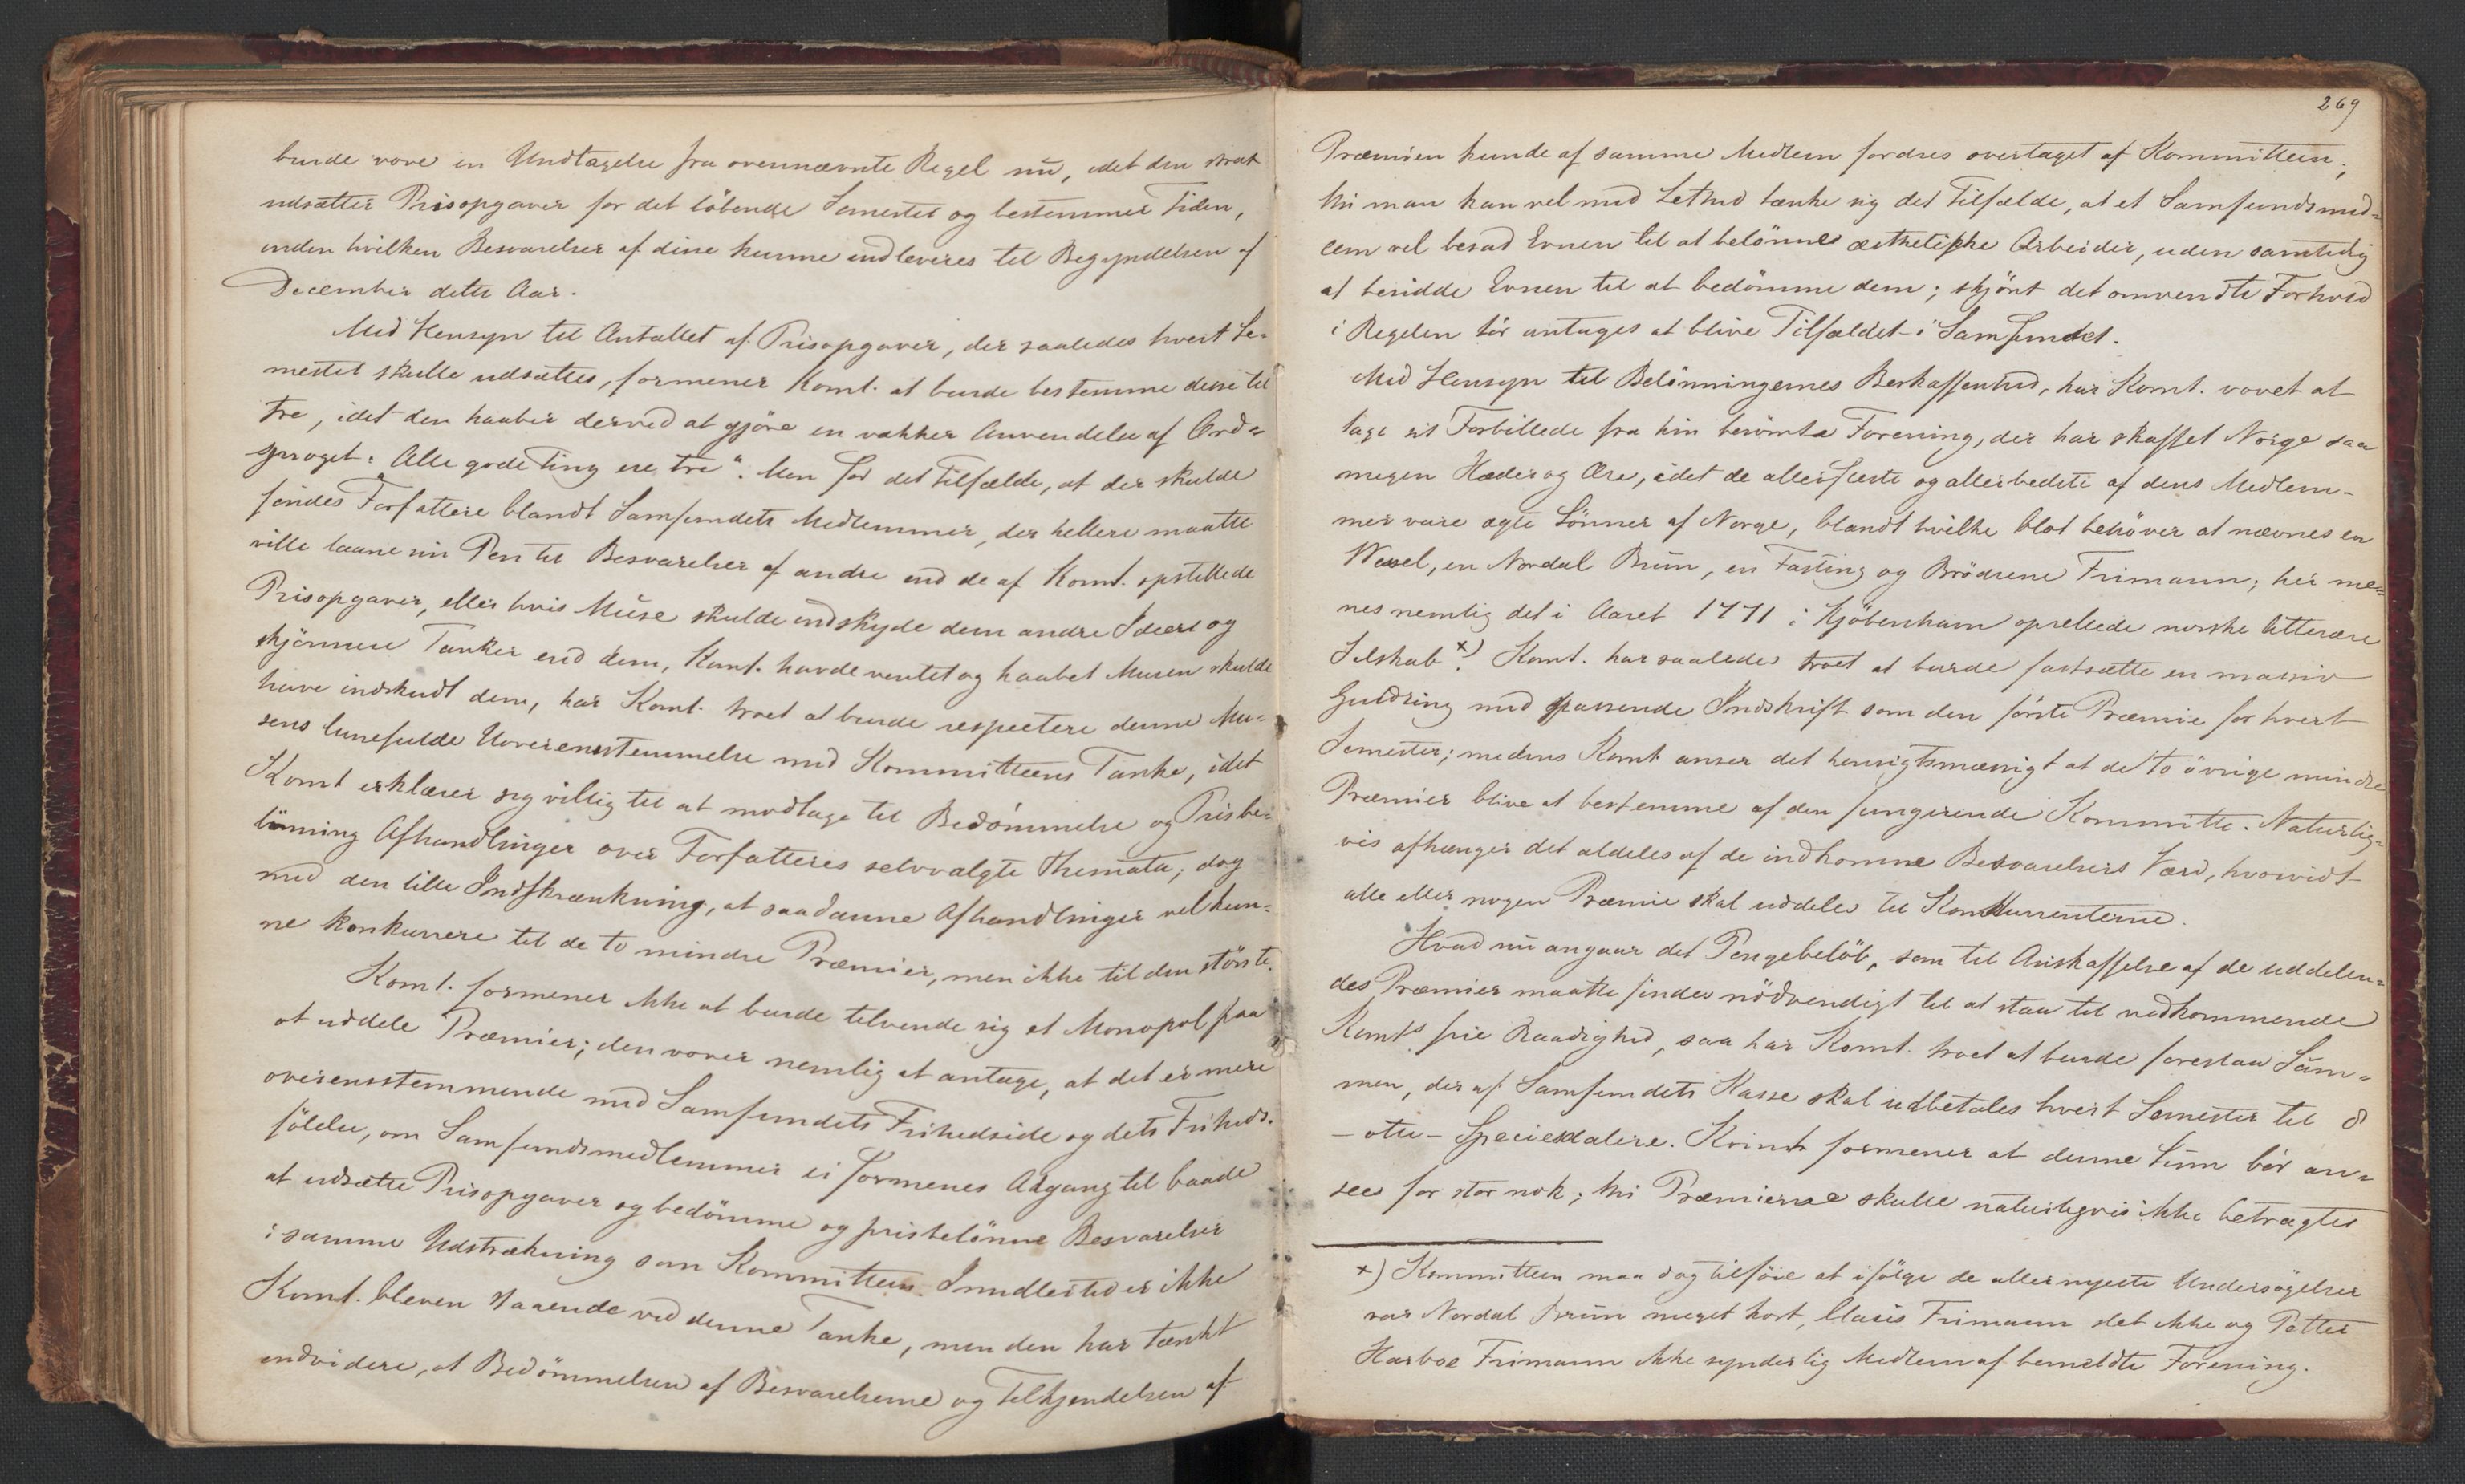 burde vove en Undtagelse fra ovennævnte Regel nu, idet den strax
udsætter Prisopgaver for det löbende Semester og bestemmer Tiden,
inden hvilken Besvarelser af disse kunne indleveres til Begyndelsen af
December dette Aar.
Med Hensyn til Antallet af Prisopgaver, der saaledes hvert Se-
mester skulle udsættes, formener Komt. at burde bestemme disse til
tre, idet den haaber derved at gjöre en vakker Anvendelse af Ord-
sproget: Alle gode Ting ere tre". Men for det Tilfælde, at der skulde
findes Forfattere blandt Samfundets Medlemmer, der hellere maatte
ville laane sin Pen til Besvarelser af andre end de af Komt. opstillede
Prisopgaver, eller hvis Muse skulde indskyde dem andre Ideer og
skjönnere Tanker end dem, Komt. havde ventet og haabet Musen skulde
have indskudt dem, har Komt. troet at burde respectere denne Mu-
sens lunefulde Uoverensstemmelse med Kommitteens Tanke, idet
Komt erklærer sig villig til at modtage til Bedömmelse og Prisbe-
lönning Afhandlinger over Forfatteres selvvalgte Themata; dog
med den lille Indskrænkning, at saadanne Afhandlinger vel kun-
ne konkurrere til de to mindre Præmier, men ikke til den störste.
Komt. formener ikke at burde tilvende sig et Monopol paa
at uddele Præmier; den vover nemlig at antage, at det er mere
overensstemmende med Samfundets Frihedside og dets Friheds-
fölelse, om Samfundsmedlemmer ei formenes Adgang til baade
at udsætte Prisopgaver og bedömme og prisbelönne Besvarelser
i samme Udstrækning som Kommitteen. Imidlertid er ikke
Komt. bleven staaende ved denne Tanke, men den har tænkt
endvidere, at Bedömmelsen af Besvarelserne og Tilkjendelsen af
269
Præmien kunde af samme Medlem fordres overtaget af Kommitteen;
thi man kan vel med Lethed tænke sig det Tilfælde, at et Samfundsmed-
lem vel besad Evnen til at belönne æsthetiske Arbeider, uden samtidig
at besidde Evnen til at bedömme dem; skjönt det omvendte Forhold
i Regelen tör antages at blive Tilfældet i Samfundet.
Med Hensyn til Belönningernes Beskaffenhed, har Komt. vovet at
tage sit Forbillede fra hin berömte Forening, der har skaffet Norge saa
megen Hæder og Ære, idet de allerfleste og allerbedste af dens Medlem-
mer vare ægte Sönner af Norge, blandt hvilke blot behöver at nævnes en
Wessel, en Nordal Brun, en Fasting og Brödrene Frimann; her me-
nes nemlig det i Aaret 1771 i Kjöbenhavn oprettede norske litterære
Selskab x). Komt. har saaledes troet at burde fastsætte en massiv
Guldring med passende Indskrift som den förste Præmie for hvert
Semester; medens Komt anser det hensigtsmæssigt at de to övrige mindre
Præmier blive at bestemme af den fungerende Kommitte. Naturlig-
vis afhænger det aldeles af de indkomne Besvarelsers Værd, hvorvidt
alle eller nogen Præmie skal uddeles til Konkurrenterne.
Hvad nu angaar det Pengebelöb, som til Anskaffelse af de uddelen-
des Præmier maatte findes nödvendigt til at staa til vedkommende
Komts frie Raadighed, saa har Komt. troet at burde foreslaa Sum-
men, der af Samfundets Kasse skal udbetales hvert Semester til 8
- otte - Speciesdalere. Komt formener at denne Sum bör an-
sees for stor nok; thi Præmierne skulle naturligvis ikke betragtes
x) Kommitteen maa dog tilföie at ifölge de allernyeste Undersögelser
var Nordal Brun meget kort, Claus Frimann slet ikke og Petter
Harboe Frimann ikke synderlig Medlem af bemeldte Forening.